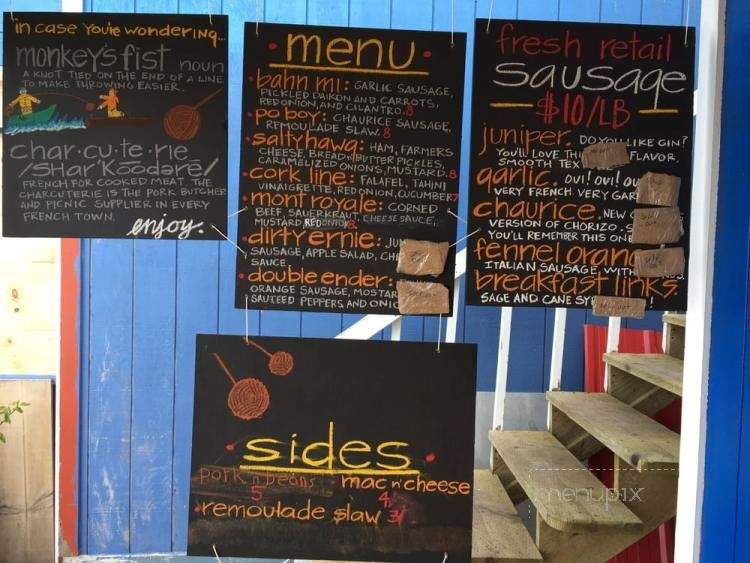 in case you're wondering...
monkey's fist noun
A KNOT TIED ON THE END OF A LINE
TO MAKE THROWING EASIER.
char·cu·te·rie
/SHär'Koodərē/
FRENCH FOR COOKED MEAT. THE
CHARCUTERIE IS THE PORK BUTCHER
AND PICNIC SUPPLIER IN EVERY
FRENCH TOWN.
enjoy.
menu
bahn mi: GARLIC SAUSAGE,
PICKLED DAIKON AND CARROTS,
RED ONION, AND CILANTRO. 8
po boy: CHAURICE SAUSAGE,
REMOULADE SLAW. 8
saltyhawg: HAM, FARMERS
CHEESE, BREAD N' BUTTER PICKLES,
CARAMELIZED ONIONS, MUSTARD. 8
cork line: FALAFEL, TAHINI
VINAIGRETTE, RED ONION, CUCUMBER 7
mont royale: CORNED
BEEF, SAUERKRAUT, CHEESE SAUCE,
MUSTARD, RED ONION
dirty ernie:
SAUSAGE, APPLE SALAD,
SAUCE
double ender:
ORANGE SAUSAGE,
SAUTEED PEPPERS AND
fresh retail
sausage
$10/LB
juniper. DO YOU LIKE GIN?
YOU'LL LOVE FLAVOR,
SMOOTH
garlic. OUI! OUI!
VERY FRENCH. VERY
chaurice.
VERSION OF CHORIZO.
YOU'LL REMEMBER THIS
fennel
ITALIAN SAUSAGE,
breakfast links.
SAGE AND CANE !
sides
pork n' beans mac n' cheese
5 4
remoulade slaw 3
menupix